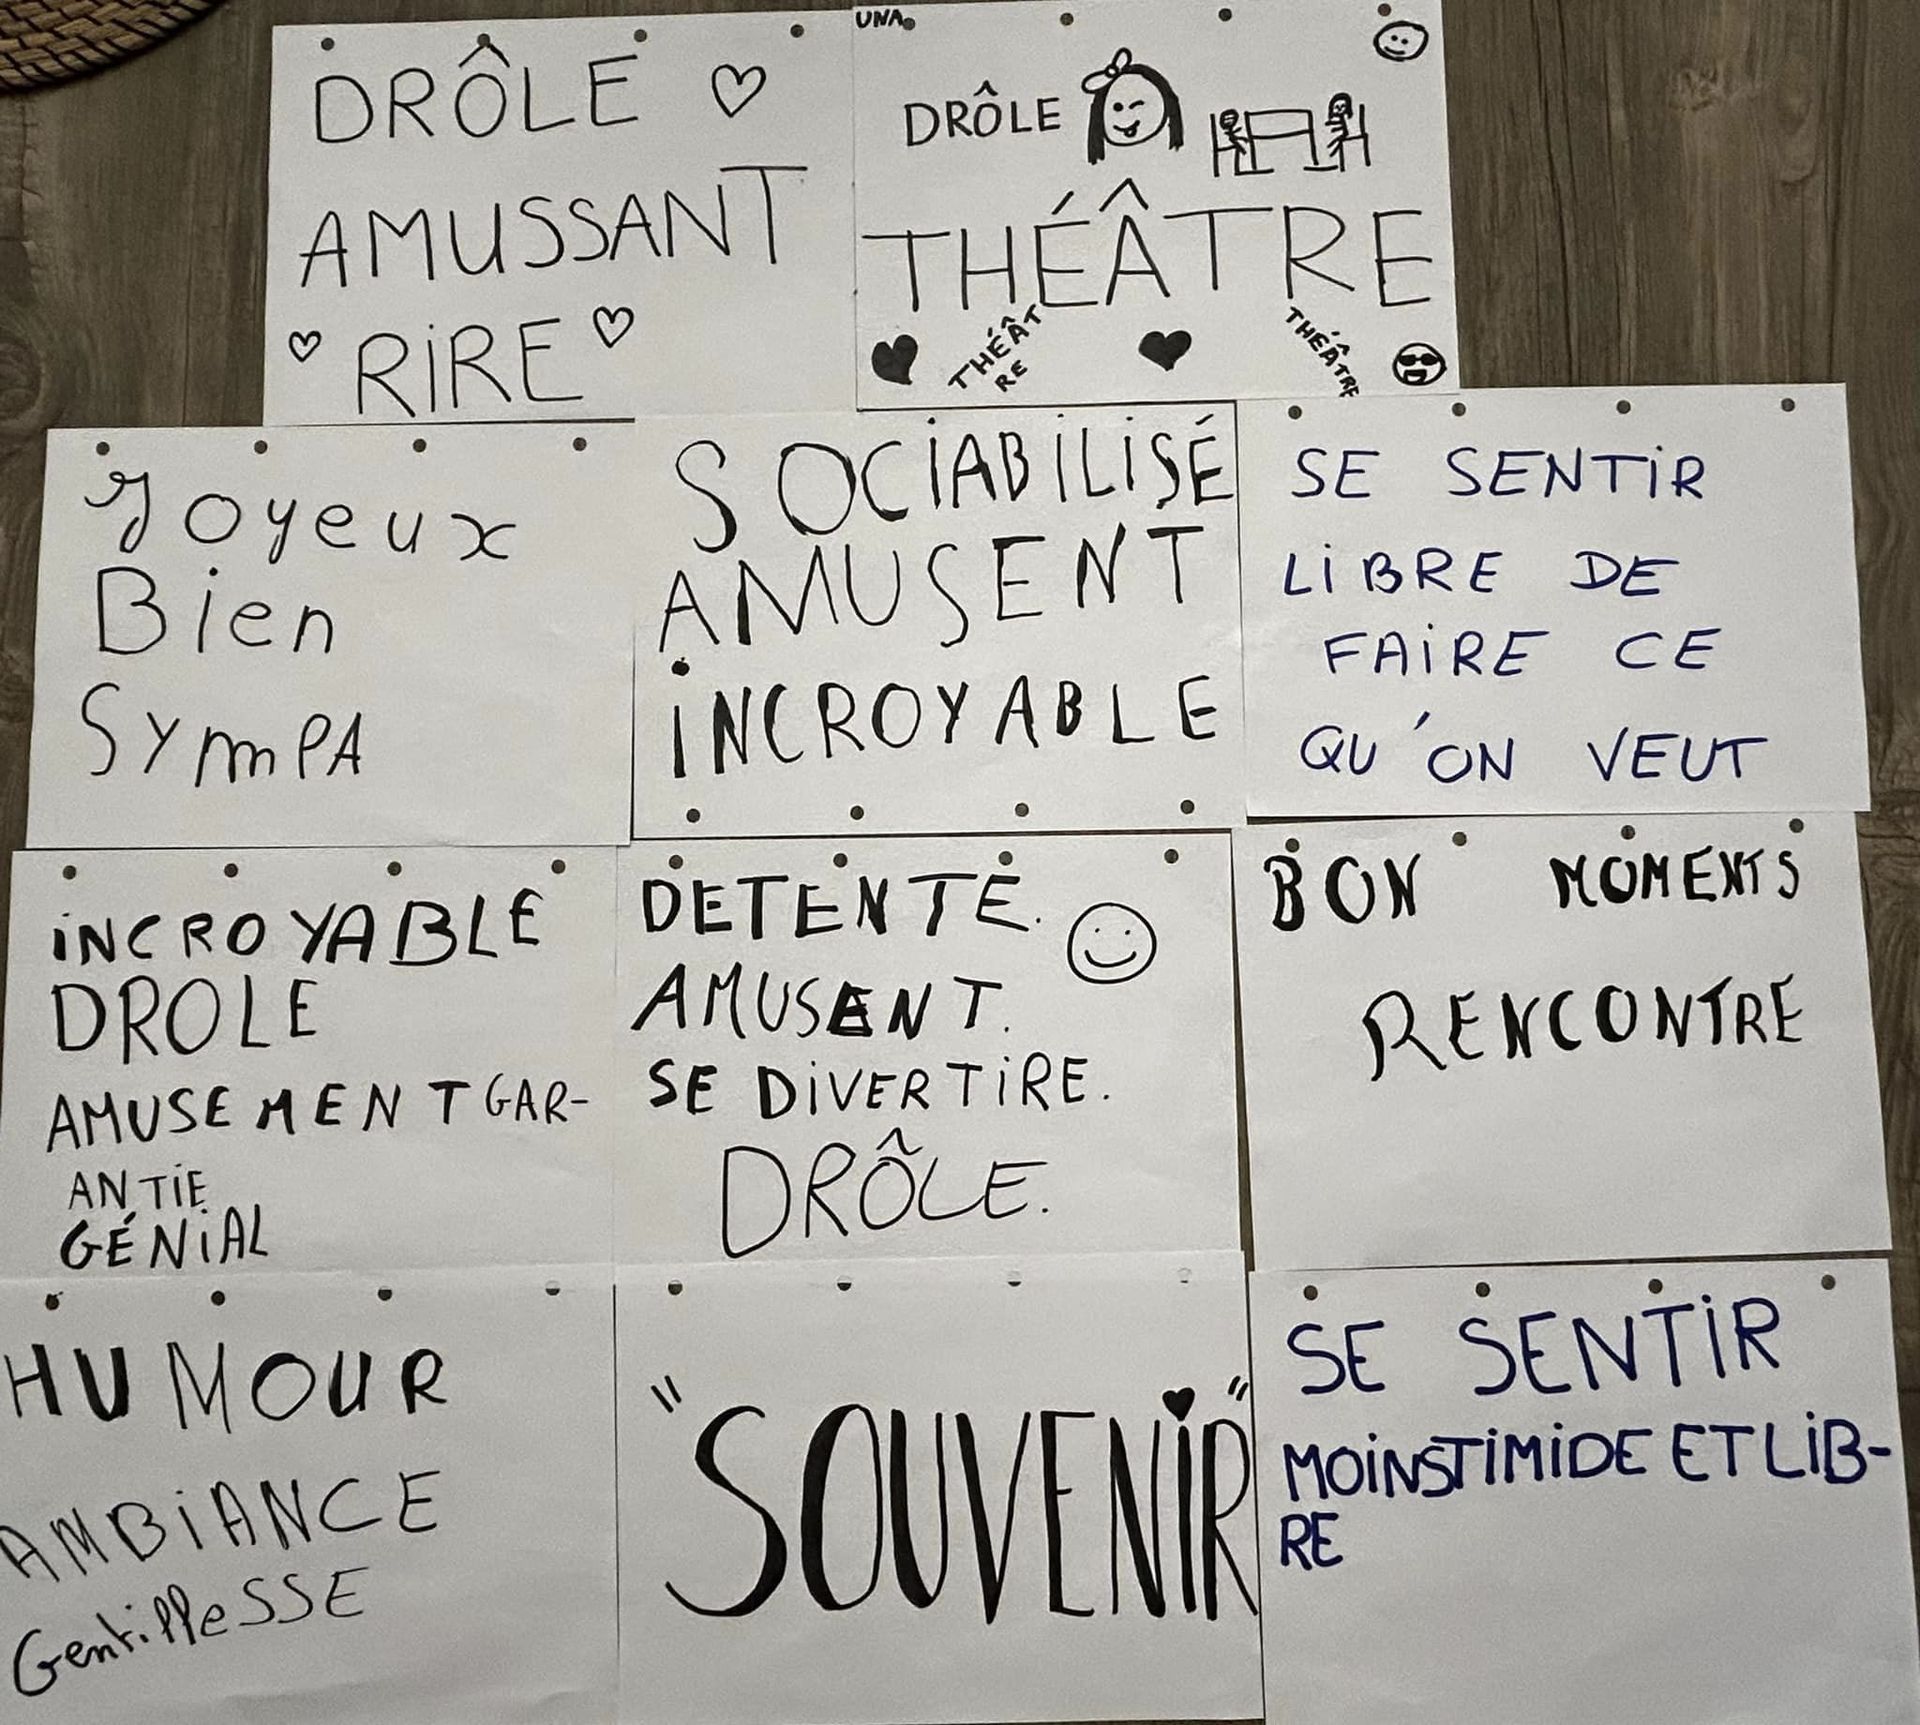 DRÔLE
AMUSSANT
RIRE
UNA
DRÔLE
THÉÂTRE
THÉÂT
RE
THÉÂTRE
Joyeux
Bien
SYmPA
SOCIABILISÉ
AMUSENT
INCROYABLE
SE SENTIR
LIBRE DE
FAIRE CE
QU'ON VEUT
INCROYABLE
DROLE
AMUSEMENT GAR-
ANTIE
GÉNIAL
DETENTE.
AMUSENT.
SE DIVERTIRE.
DRÔLE.
BON MOMENTS
RENCONTRE
HUMOUR
AMBIANCE
GentilleSSE
"SOUVENIR"
SE SENTIR
MOINS TIMIDE ET LIB-
RE